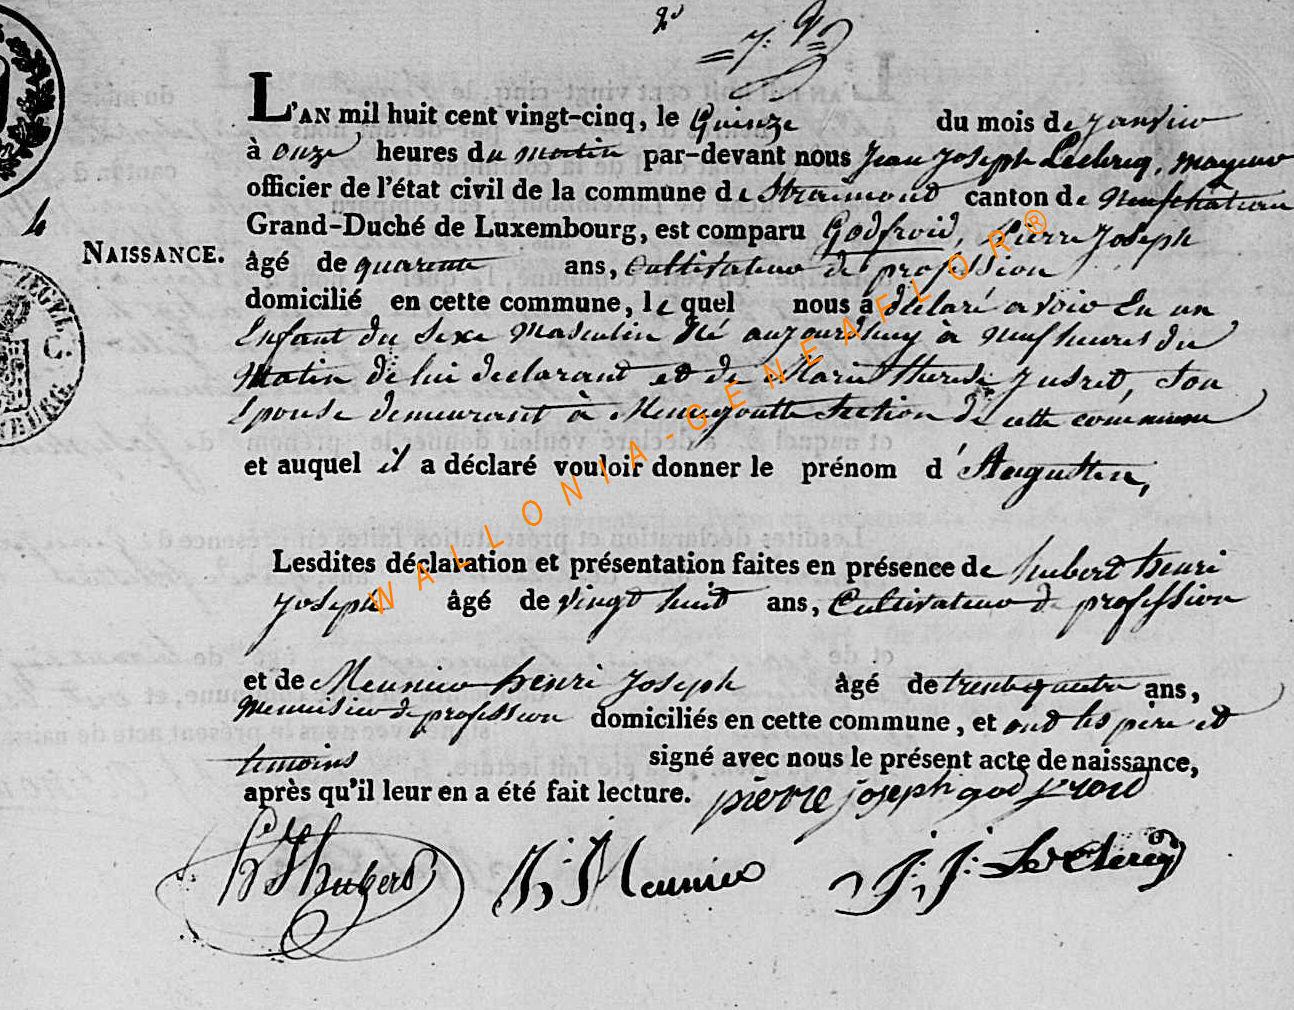 2.
L'AN mil huit cent vingt-cinq, le Quinze du mois de janvier
à onze heures du matin par-devant nous Jean Joseph Leclercq, mayeur
officier de l'état civil de la commune de Straimont canton de Neufchateau
Grand-Duché de Luxembourg, est comparu Godfroid, Pierre Joseph
NAISSANCE. âgé de quarante ans, Cultivateur de profession
domicilié en cette commune, lequel nous a déclaré avoir eu un
Enfant du sexe Masculin né aujourdhuy à neuf heures du
Matin de lui declarant et de Marie Therese son
Epouse demeurant à Menugoutte Section de cette commune
et auquel il a déclaré vouloir donner le prénom d'Augustin,
Lesdites déclaration et présentation faites en présence de hubert henri
Joseph âgé de vingt huit ans, Cultivateur de profession
et de Meunier henri Joseph âgé de trente quatre ans,
Menuisier de profession domiciliés en cette commune, et ont les père et
temoins signé avec nous le présent acte de naissance,
après qu'il leur en a été fait lecture. pierre joseph godfroid
h J hubert h: J: Meunier J: J: Leclercq
WALLONIA-GENEAFLOR®